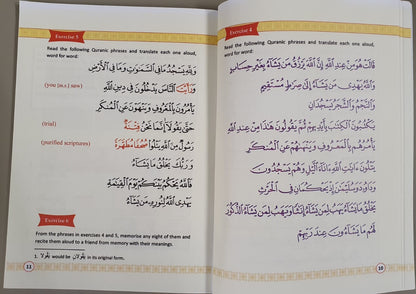 Exercise 4
Read the following Quranic phrases and translate each one aloud,
word for word:
قَالَتْ هُوَ مِنْ عِندِ اللَّهِ إِنَّ اللَّهَ يَرْزُقُ مَن يَشَاءُ بِغَيْرِ حِسَابٍ
وَاللَّهُ يَهْدِي مَن يَشَاءُ إِلَىٰ صِرَاطٍ مُّسْتَقِيمٍ
وَالنَّجْمُ وَالشَّجَرُ يَسْجُدَانِ
يَكْتُبُونَ الْكِتَٰبَ بِأَيْدِيهِمْ ثُمَّ يَقُولُونَ هَٰذَا مِنْ عِندِ اللَّهِ
يَأْمُرُهُم بِالْمَعْرُوفِ وَيَنْهَىٰهُمْ عَنِ الْمُنكَرِ
يَتْلُونَ ءَايَٰتِ اللَّهِ ءَانَاءَ اللَّيْلِ وَهُمْ يَسْجُدُونَ
وَدَاوُودَ وَسُلَيْمَٰنَ إِذْ يَحْكُمَانِ فِي الْحَرْثِ
يَخْلُقُ مَا يَشَاءُ يَهَبُ لِمَن يَشَاءُ إِنَٰثًا وَيَهَبُ لِمَن يَشَاءُ الذُّكُورَ
لَهُم مَّا يَشَاءُونَ عِندَ رَبِّهِمْ
10
Exercise 5
Read the following Quranic phrases and translate each one aloud,
word for word:
وَلِلَّهِ يَسْجُدُ مَا فِي السَّمَٰوَٰتِ وَمَا فِي الْأَرْضِ
وَرَأَيْتَ النَّاسَ يَدْخُلُونَ فِي دِينِ اللَّهِ (you [m.s.] saw)
يَأْمُرُونَ بِالْمَعْرُوفِ وَيَنْهَوْنَ عَنِ الْمُنكَرِ
حَتَّىٰ يَقُولَا إِنَّمَا نَحْنُ فِتْنَةٌ (trial)
رَسُولٌ مِّنَ اللَّهِ يَتْلُوا صُحُفًا مُّطَهَّرَةً (purified scriptures)
وَرَبُّكَ يَخْلُقُ مَا يَشَاءُ
فَاللَّهُ يَحْكُمُ بَيْنَكُمْ يَوْمَ الْقِيَٰمَةِ
يَهْدِي اللَّهُ لِنُورِهِ مَن يَشَاءُ
Exercise 6
From the phrases in exercises 4 and 5, memorise any eight of them and
recite them aloud to a friend from memory with their meanings.
1. يَقُولَا would be يَقُولَانِ in its original form.
11